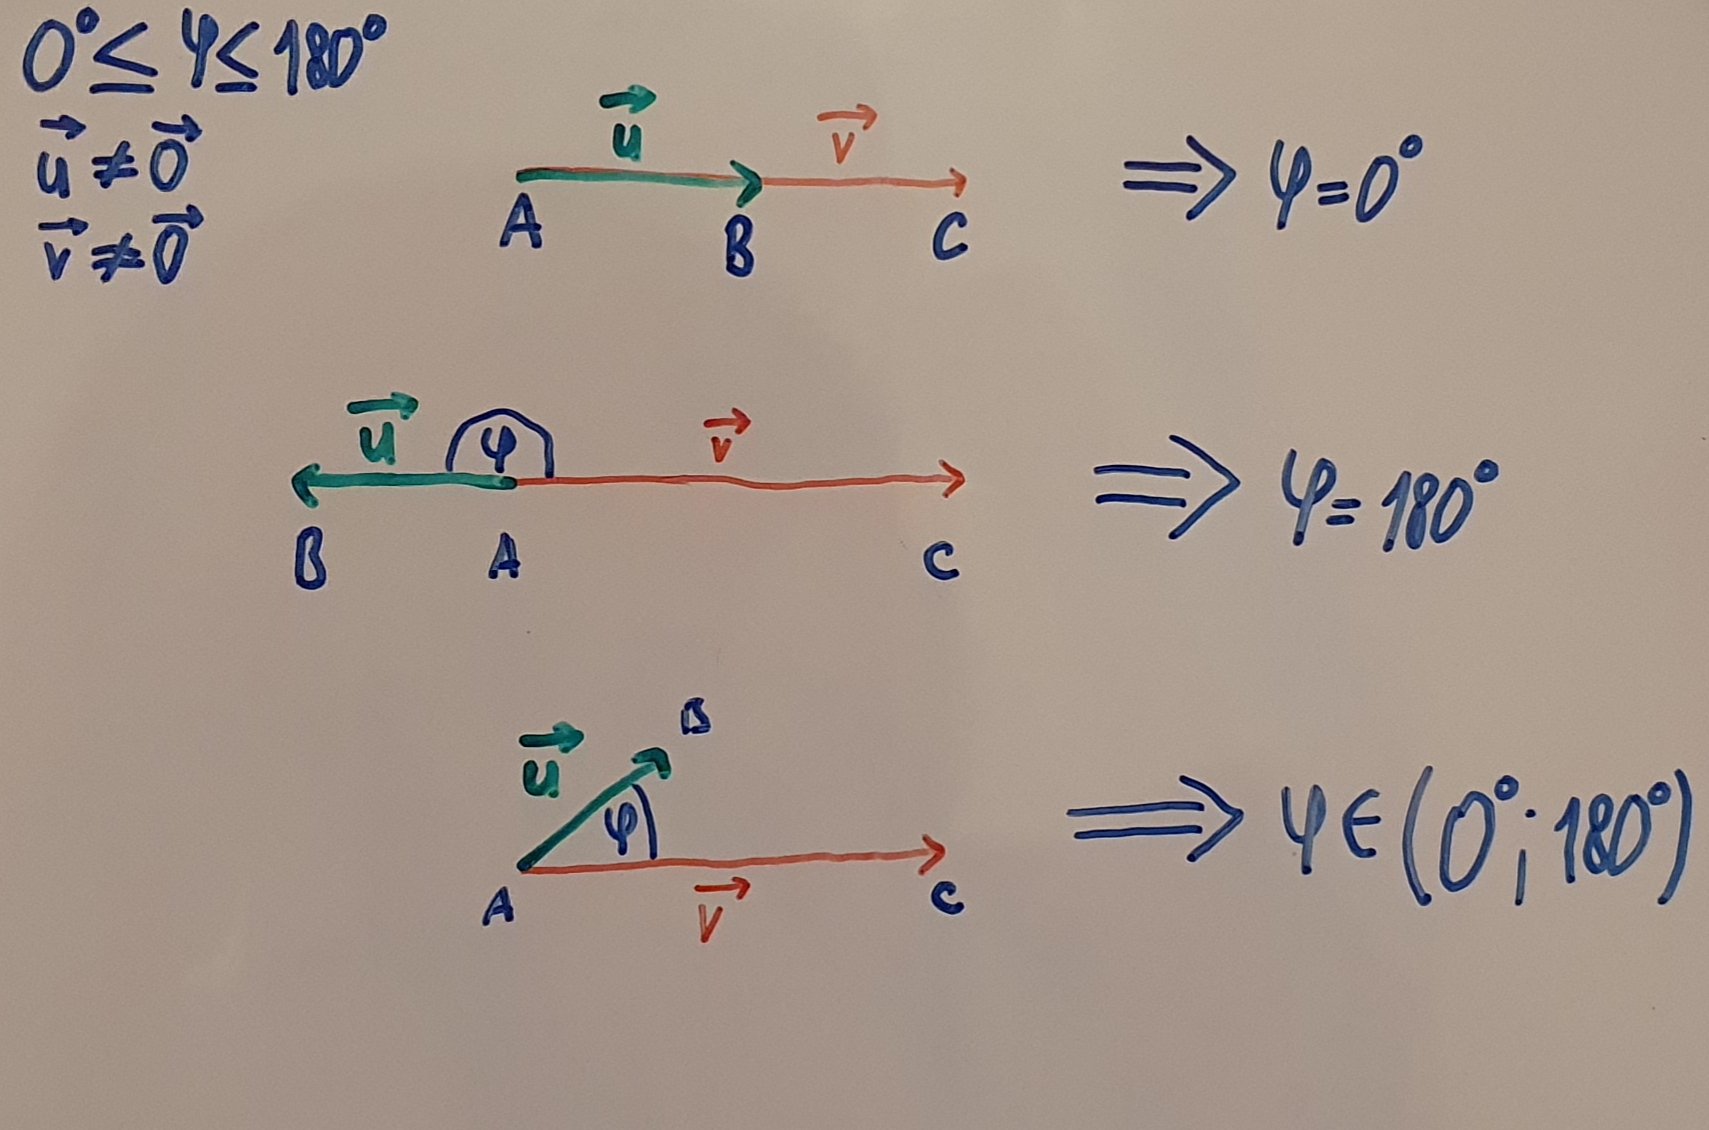 0° ≤ φ ≤ 180°
u⃗ ≠ 0⃗
v⃗ ≠ 0⃗
u⃗ v⃗
A B C
⟹ φ = 0°
u⃗ φ v⃗
B A C
⟹ φ = 180°
B
u⃗
φ
A v⃗ C
⟹ φ ∈ (0°; 180°)